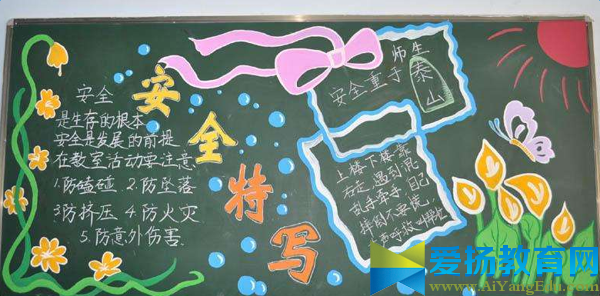 安全
是生存的根本
安全是发展的前提
在教室活动要注意
1.防磕碰 2.防坠落
3防挤压 4.防火灾
5.防意外伤害
安全特写
师生
安全重于
泰山
上楼下楼靠
右走,遇到混
乱手牵手,自己
摔倒不要慌,
呼救
爱扬教育网
www.AiYangEdu.com